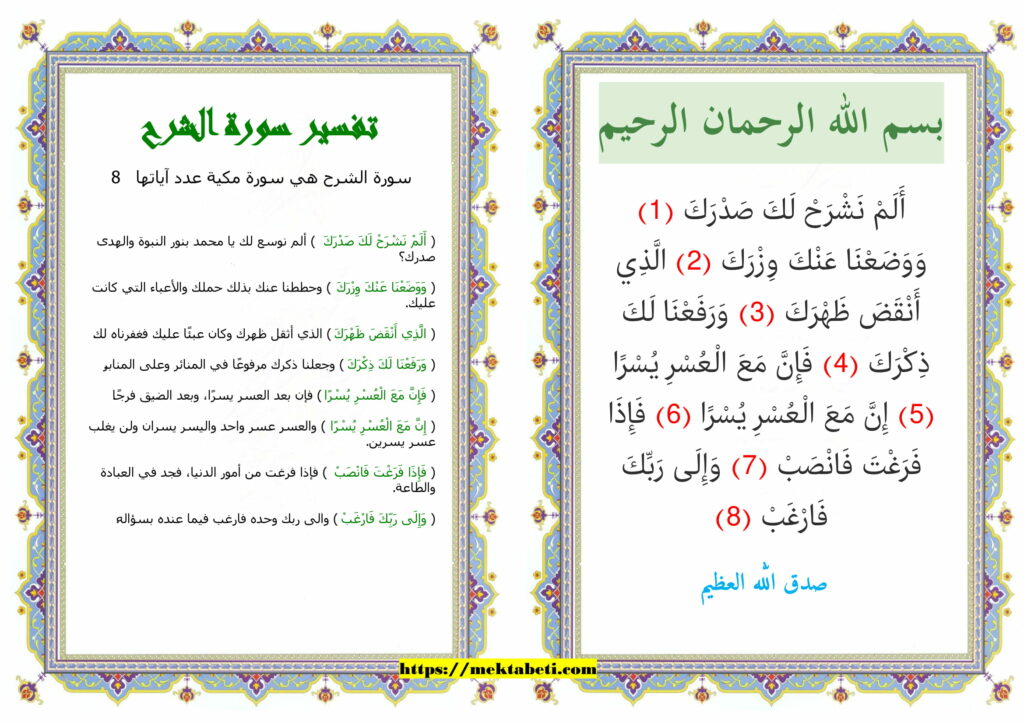 بسم الله الرحمان الرحيم
أَلَمْ نَشْرَحْ لَكَ صَدْرَكَ (1)
وَوَضَعْنَا عَنْكَ وِزْرَكَ (2) الَّذِي
أَنْقَضَ ظَهْرَكَ (3) وَرَفَعْنَا لَكَ
ذِكْرَكَ (4) فَإِنَّ مَعَ الْعُسْرِ يُسْرًا
(5) إِنَّ مَعَ الْعُسْرِ يُسْرًا (6) فَإِذَا
فَرَغْتَ فَانْصَبْ (7) وَإِلَى رَبِّكَ
فَارْغَبْ (8)
صدق الله العظيم
تفسير سورة الشرح
سورة الشرح هي سورة مكية عدد آياتها 8
( أَلَمْ نَشْرَحْ لَكَ صَدْرَكَ ) ألم نوسع لك يا محمد بنور النبوة والهدى
صدرك؟
( وَوَضَعْنَا عَنْكَ وِزْرَكَ ) وحططنا عنك بذلك حملك والأعباء التي كانت
عليك.
( الَّذِي أَنْقَضَ ظَهْرَكَ ) الذي أثقل ظهرك وكان عبئًا عليك فغفرناه لك
( وَرَفَعْنَا لَكَ ذِكْرَكَ ) وجعلنا ذكرك مرفوعًا في المنائر وعلى المنابر
( فَإِنَّ مَعَ الْعُسْرِ يُسْرًا ) فإن بعد العسر يسرًا، وبعد الضيق فرجًا
( إِنَّ مَعَ الْعُسْرِ يُسْرًا ) والعسر عسر واحد واليسر يسران ولن يغلب
عسر يسرين.
( فَإِذَا فَرَغْتَ فَانْصَبْ ) فإذا فرغت من أمور الدنيا، فجد في العبادة
والطاعة.
( وَإِلَى رَبِّكَ فَارْغَبْ ) والى ربك وحده فارغب فيما عنده بسؤاله
https://mektabeti.com